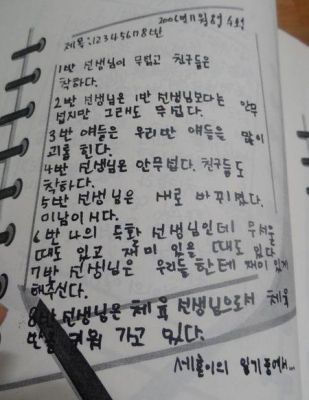 2006년 11월 8일 수요일
제목:12345678반
1반 선생님이 무섭고 친구들은
착하다.
2반 선생님은 1반 선생님보다는 안무
섭지만 그래도 무섭다.
3반 얘들은 우리반 얘들을 많이
괴롭힌다.
4반 선생님은 안무섭다. 친구들도
착하다.
5반 선생님은 새로 바뀌셨다.
미남이시다.
6반 나의 독화 선생님인데 무서울
때도 있고 재미 있을 때도 있다
7반 선생님은 우리들한테 재미있게
해주신다.
8반 선생님은 체육 선생님으로서 체육
반을 키워 가고 있다.
세훈이의 일기중에서...